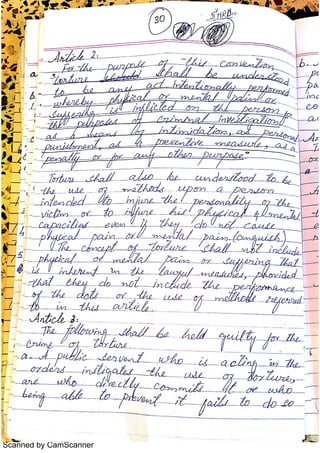 30
Article 2:
For the purpose of "this convention
"torture shall be understood
to be any act intentionally performed
whereby physical or mental pain or
suffering is inflicted on the person for
the purposes of criminal investigation
as a means of intimidation, as personal
punishment, as a preventive measure, as a
penalty or for any other purpose"
Torture shall also be understood to be
the use of methods upon a person
intended to injure the personality of the
victim or to injure his physical & mental
capacities even if they do not cause
physical pain or mental pain. (anguish)
The concept of torture shall not include
physical or mental pain or suffering that
is inherent in the lawful measures, provided
that they do not include the performance
of the acts or the use of methods referred
to in this article.
Article 3:
The following shall be held guilty for the
crime of torture.
a- A public servent who is acting in the
orders instigates the use of torture,
are who directly commits it or who
being able to prevent it fails to do so
Scanned by CamScanner